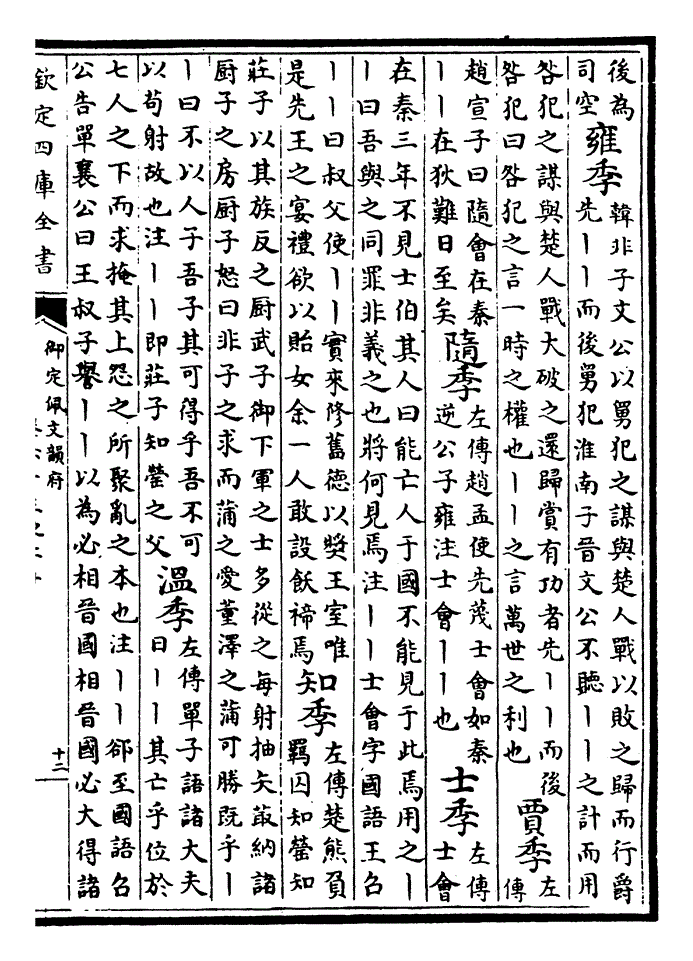 後為
司空
雍季
韓非子文公以舅犯之謀與楚人戰以敗之歸而行爵
先丨丨而後舅犯淮南子晉文公不聽丨丨之計而用
咎犯之謀與楚人戰大破之還歸賞有功者先丨丨而後
咎犯曰咎犯之言一時之權也丨丨之言萬世之利也
賈季
左
傳
趙宣子曰隨會在秦
丨丨在狄難日至矣
隨季
左傳趙孟使先蔑士會如秦
逆公子雍注士會丨丨也
士季
左傳
士會
在秦三年不見士伯其人曰能亡人于國不能見于此焉用之丨
丨曰吾與之同罪非義之也將何見焉注丨丨士會字國語王召
丨丨曰叔父使丨丨實來修舊德以奬王室唯
是先王之宴禮欲以貽女余一人敢設飫禘焉
知季
左傳楚熊負
羈囚知罃知
莊子以其族反之厨武子御下軍之士多從之每射抽矢菆納諸
厨子之房厨子怒曰非子之求而蒲之愛董澤之蒲可勝既乎丨
丨曰不以人子吾子其可得乎吾不可
以苟射故也注丨丨即莊子知罃之父
溫季
左傳單子語諸大夫
曰丨丨其亡乎位於
七人之下而求掩其上怨之所聚亂之本也注丨丨郤至國語召
公告單襄公曰王叔子譽丨丨以為必相晉國相晉國必大得諸
欽定四庫全書
御定佩文韻府
十二